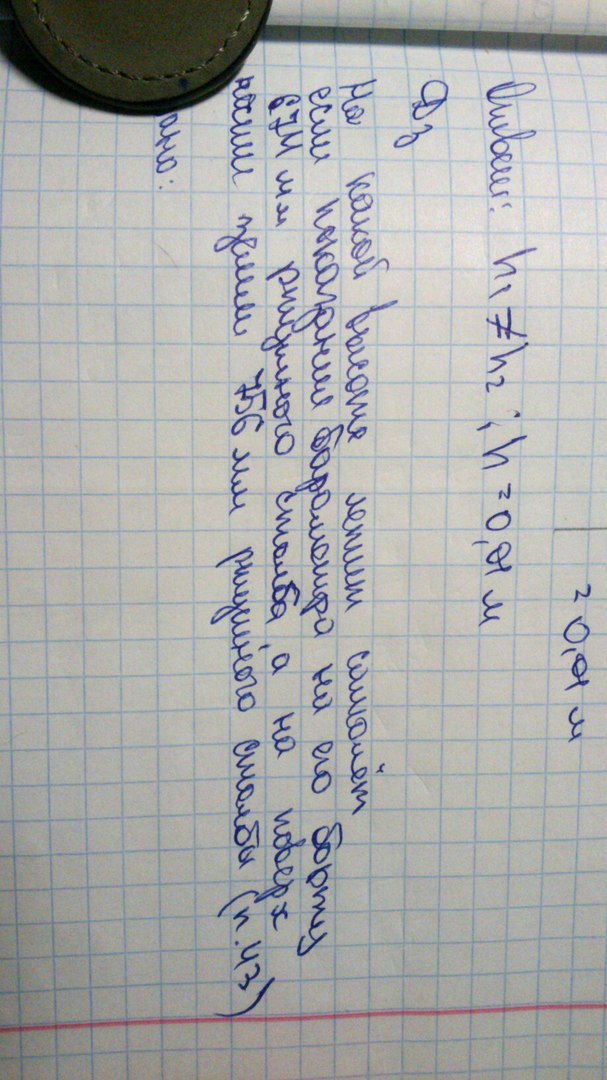 = 0,01 м
Ответ: h₁ ≠ h₂ ; h = 0,01 м
Дз
На какой высоте летит самолёт
если показание барометра на его борту
674 мм ртутного столба, а на поверх
ности земли 756 мм ртутного столба (п.43)
ано: